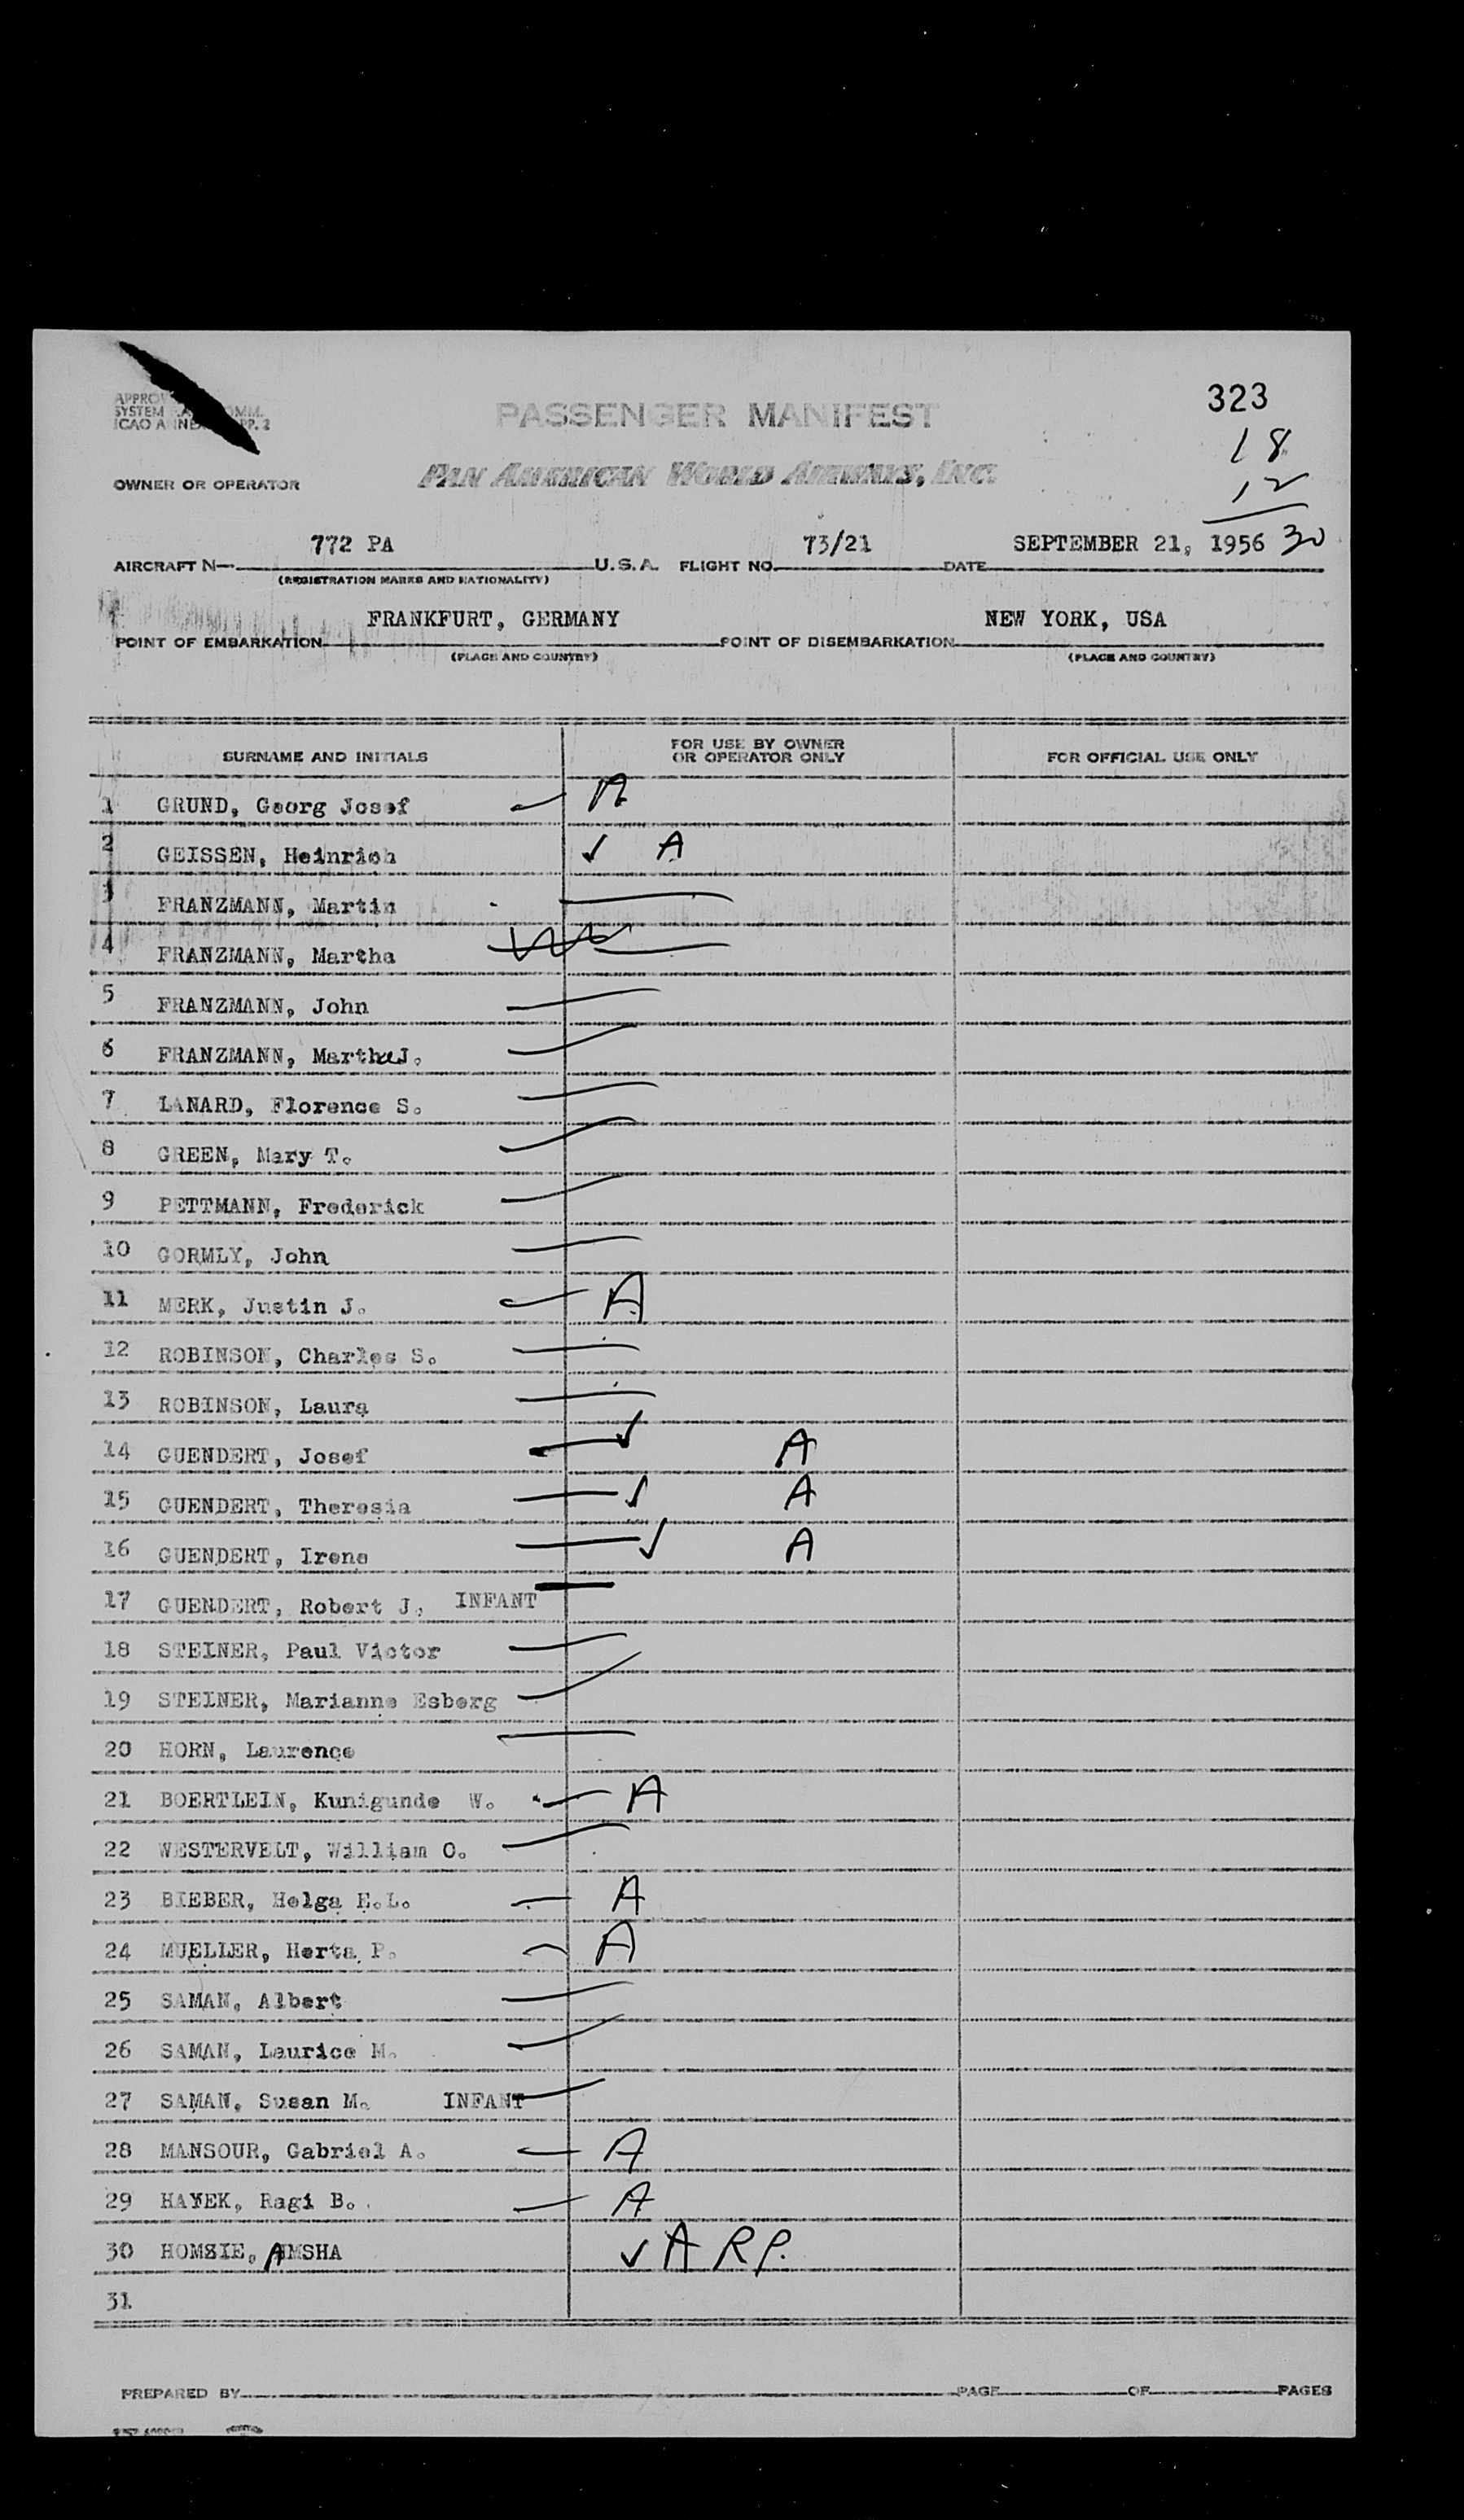 323
PASSENGER MANIFEST
18
SYSTEM
PAN AMERICAN WORLD AIRWAYS, INC.
OWNER OR OPERATOR
12
30
772 PA 73/21 SEPTEMBER 21, 1956
AIRCRAFT N— U.S.A. FLIGHT NO. DATE
(REGISTRATION MARKS AND NATIONALITY)
FRANKFURT, GERMANY NEW YORK, USA
POINT OF EMBARKATION POINT OF DISEMBARKATION
(PLACE AND COUNTRY) (PLACE AND COUNTRY)
SURNAME AND INITIALS FOR USE BY OWNER OR OPERATOR ONLY FOR OFFICIAL USE ONLY
1 GRUND, Georg Josef A
2 GEISSEN, Heinrich ✓ A
3 FRANZMANN, Martin
4 FRANZMANN, Martha
5 FRANZMANN, John
6 FRANZMANN, Martha J.
7 LANARD, Florence S.
8 GREEN, Mary T.
9 PETTMANN, Frederick
10 GORMLY, John
11 MERK, Justin J. A
12 ROBINSON, Charles S.
13 ROBINSON, Laura
14 GUENDERT, Josef ✓ A
15 GUENDERT, Theresia ✓ A
16 GUENDERT, Irene ✓ A
17 GUENDERT, Robert J. INFANT
18 STEINER, Paul Victor
19 STEINER, Marianne Esberg
20 HORN, Laurence
21 BOERTLEIN, Kunigunde W. A
22 WESTERVELT, William C.
23 BIEBER, Helga E.L. A
24 MUELLER, Herta P. A
25 SAMAN, Albert
26 SAMAN, Laurice M.
27 SAMAN, Susan M. INFANT
28 MANSOUR, Gabriel A. A
29 HAYEK, Ragi B. A
30 HOMSIE, AMSHA ✓ A R P.
31
PREPARED BY PAGE OF PAGES